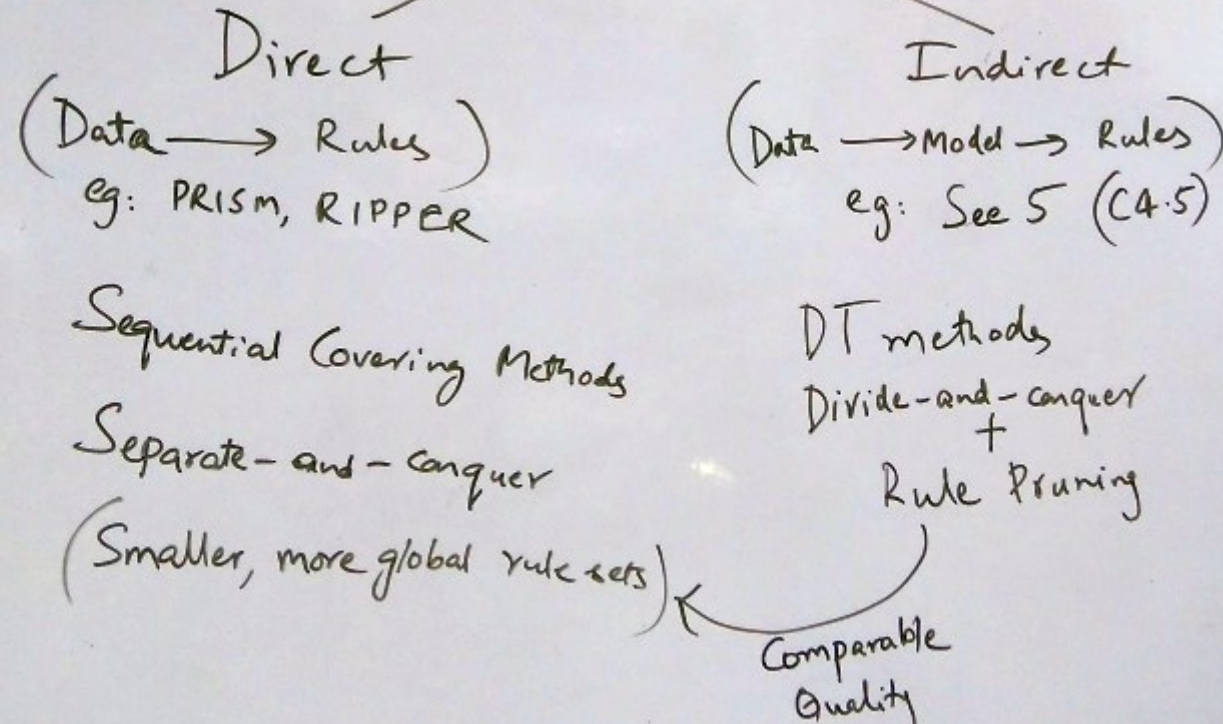 Direct
(Data → Rules)
eg: PRISM, RIPPER
Sequential Covering Methods
Separate-and-conquer
(Smaller, more global rule sets)
Indirect
(Data → Model → Rules)
eg: See 5 (C4.5)
DT methods
Divide-and-conquer
+
Rule Pruning
Comparable
Quality